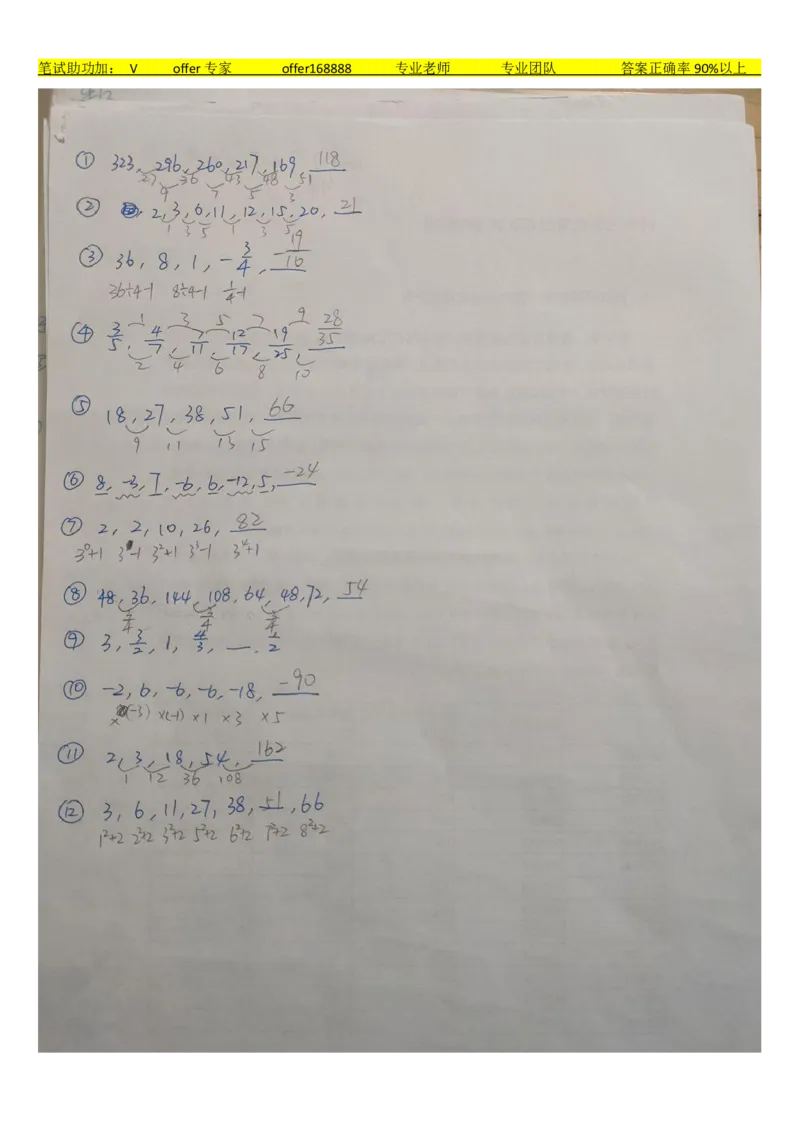 笔试助功加： V offer 专家 offer168888 专业老师 专业团队 答案正确率 90%以上
① 323, 296, 260, 217, 169, 118
27 36 43 48 51
9 7 5 3
② 2, 3, 6, 11, 12, 15, 20, 21
1 3 5 1 3 5
③ 36, 8, 1, -3/4, -19/16
36÷4-1 8÷4-1 1/4-1
1 3 5 7 9
④ 3/5, 4/7, 7/11, 12/17, 19/25, 28/35
2 4 6 8 10
⑤ 18, 27, 38, 51, 66
9 11 13 15
⑥ 8, -3, 7, -6, 6, -12, 5, -24
⑦ 2, 2, 10, 26, 82
3⁰+1 3¹-1 3²+1 3³-1 3⁴+1
⑧ 48, 36, 144, 108, 64, 48, 72, 54
3/4 3/4 3/4
⑨ 3, 3/2, 1, 4/3, __, 1/2
⑩ -2, 6, -6, -6, -18, -90
×(-3) ×(-1) ×1 ×3 ×5
⑪ 2, 3, 18, 54, 162
1 12 36 108
⑫ 3, 6, 11, 27, 38, 51, 66
1²+2 2²+2 3²+2 5²+2 6²+2 7²+2 8²+2